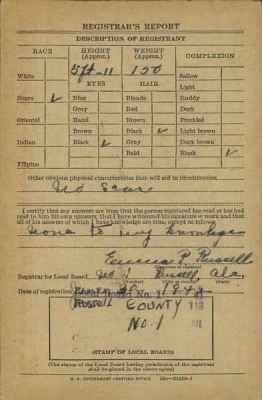 REGISTRAR'S REPORT
DESCRIPTION OF REGISTRANT
RACE HEIGHT (Approx.) WEIGHT (Approx.) COMPLEXION
5ft-11 150
White EYES HAIR Sallow
Light
Negro ✓ Blue Blonde Ruddy
Gray Red Dark
Oriental Hazel Brown Freckled
Brown Black ✓ Light brown
Indian Black ✓ Gray Dark brown
Bald Black ✓
Filipino
Other obvious physical characteristics that will aid in identification
No Scars
I certify that my answers are true; that the person registered has read or has had read to him his own answers; that I have witnessed his signature or mark and that all of his answers of which I have knowledge are true, except as follows:
None to my knowledge
P. Russell
Registrar for Local Board No. 1 Russell Ala.
Date of registration 1942
COUNTY
No. 1
(STAMP OF LOCAL BOARD)
(The stamp of the Local Board having jurisdiction of the registrant shall be placed in the above space)
U. S. GOVERNMENT PRINTING OFFICE